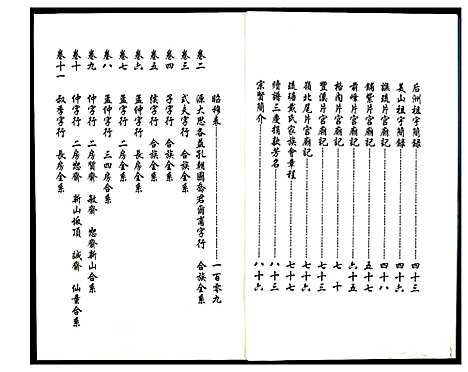 后洲祖宇簡錄……………四十三
美山祖宇簡錄……………四十六
誰琉片宮廟記……………四十八
鋪紫片宮廟記……………五十七
前峰片宮廟記……………六十五
格內片宮廟記……………七十
豐溪片宮廟記……………七十三
嶺北尾片宮廟記……………七十六
琉塘戴氏家族會章程……………七十七
續譜三慶捐款芳名……………八十四
宗賢簡介……………八十六
昭穆卷……………一百零九
卷二 源大思各益孔朝國喬君爾萬字行 合族全系
卷三 式夫字行 合族全系
卷四 子字行 合族全系
卷五 侯字行 合族全系
卷六 孟仲字行 長房全系
卷七 孟字行 二房全系
卷八 孟仲字行 三四房合系
卷九 仲字行 二房質齋 敏齋 忠齋新山合系
卷十 仲字行 二房恕齋 新山坂頂 誠齋 仙董合系
卷十一 叔季字行 長房全系